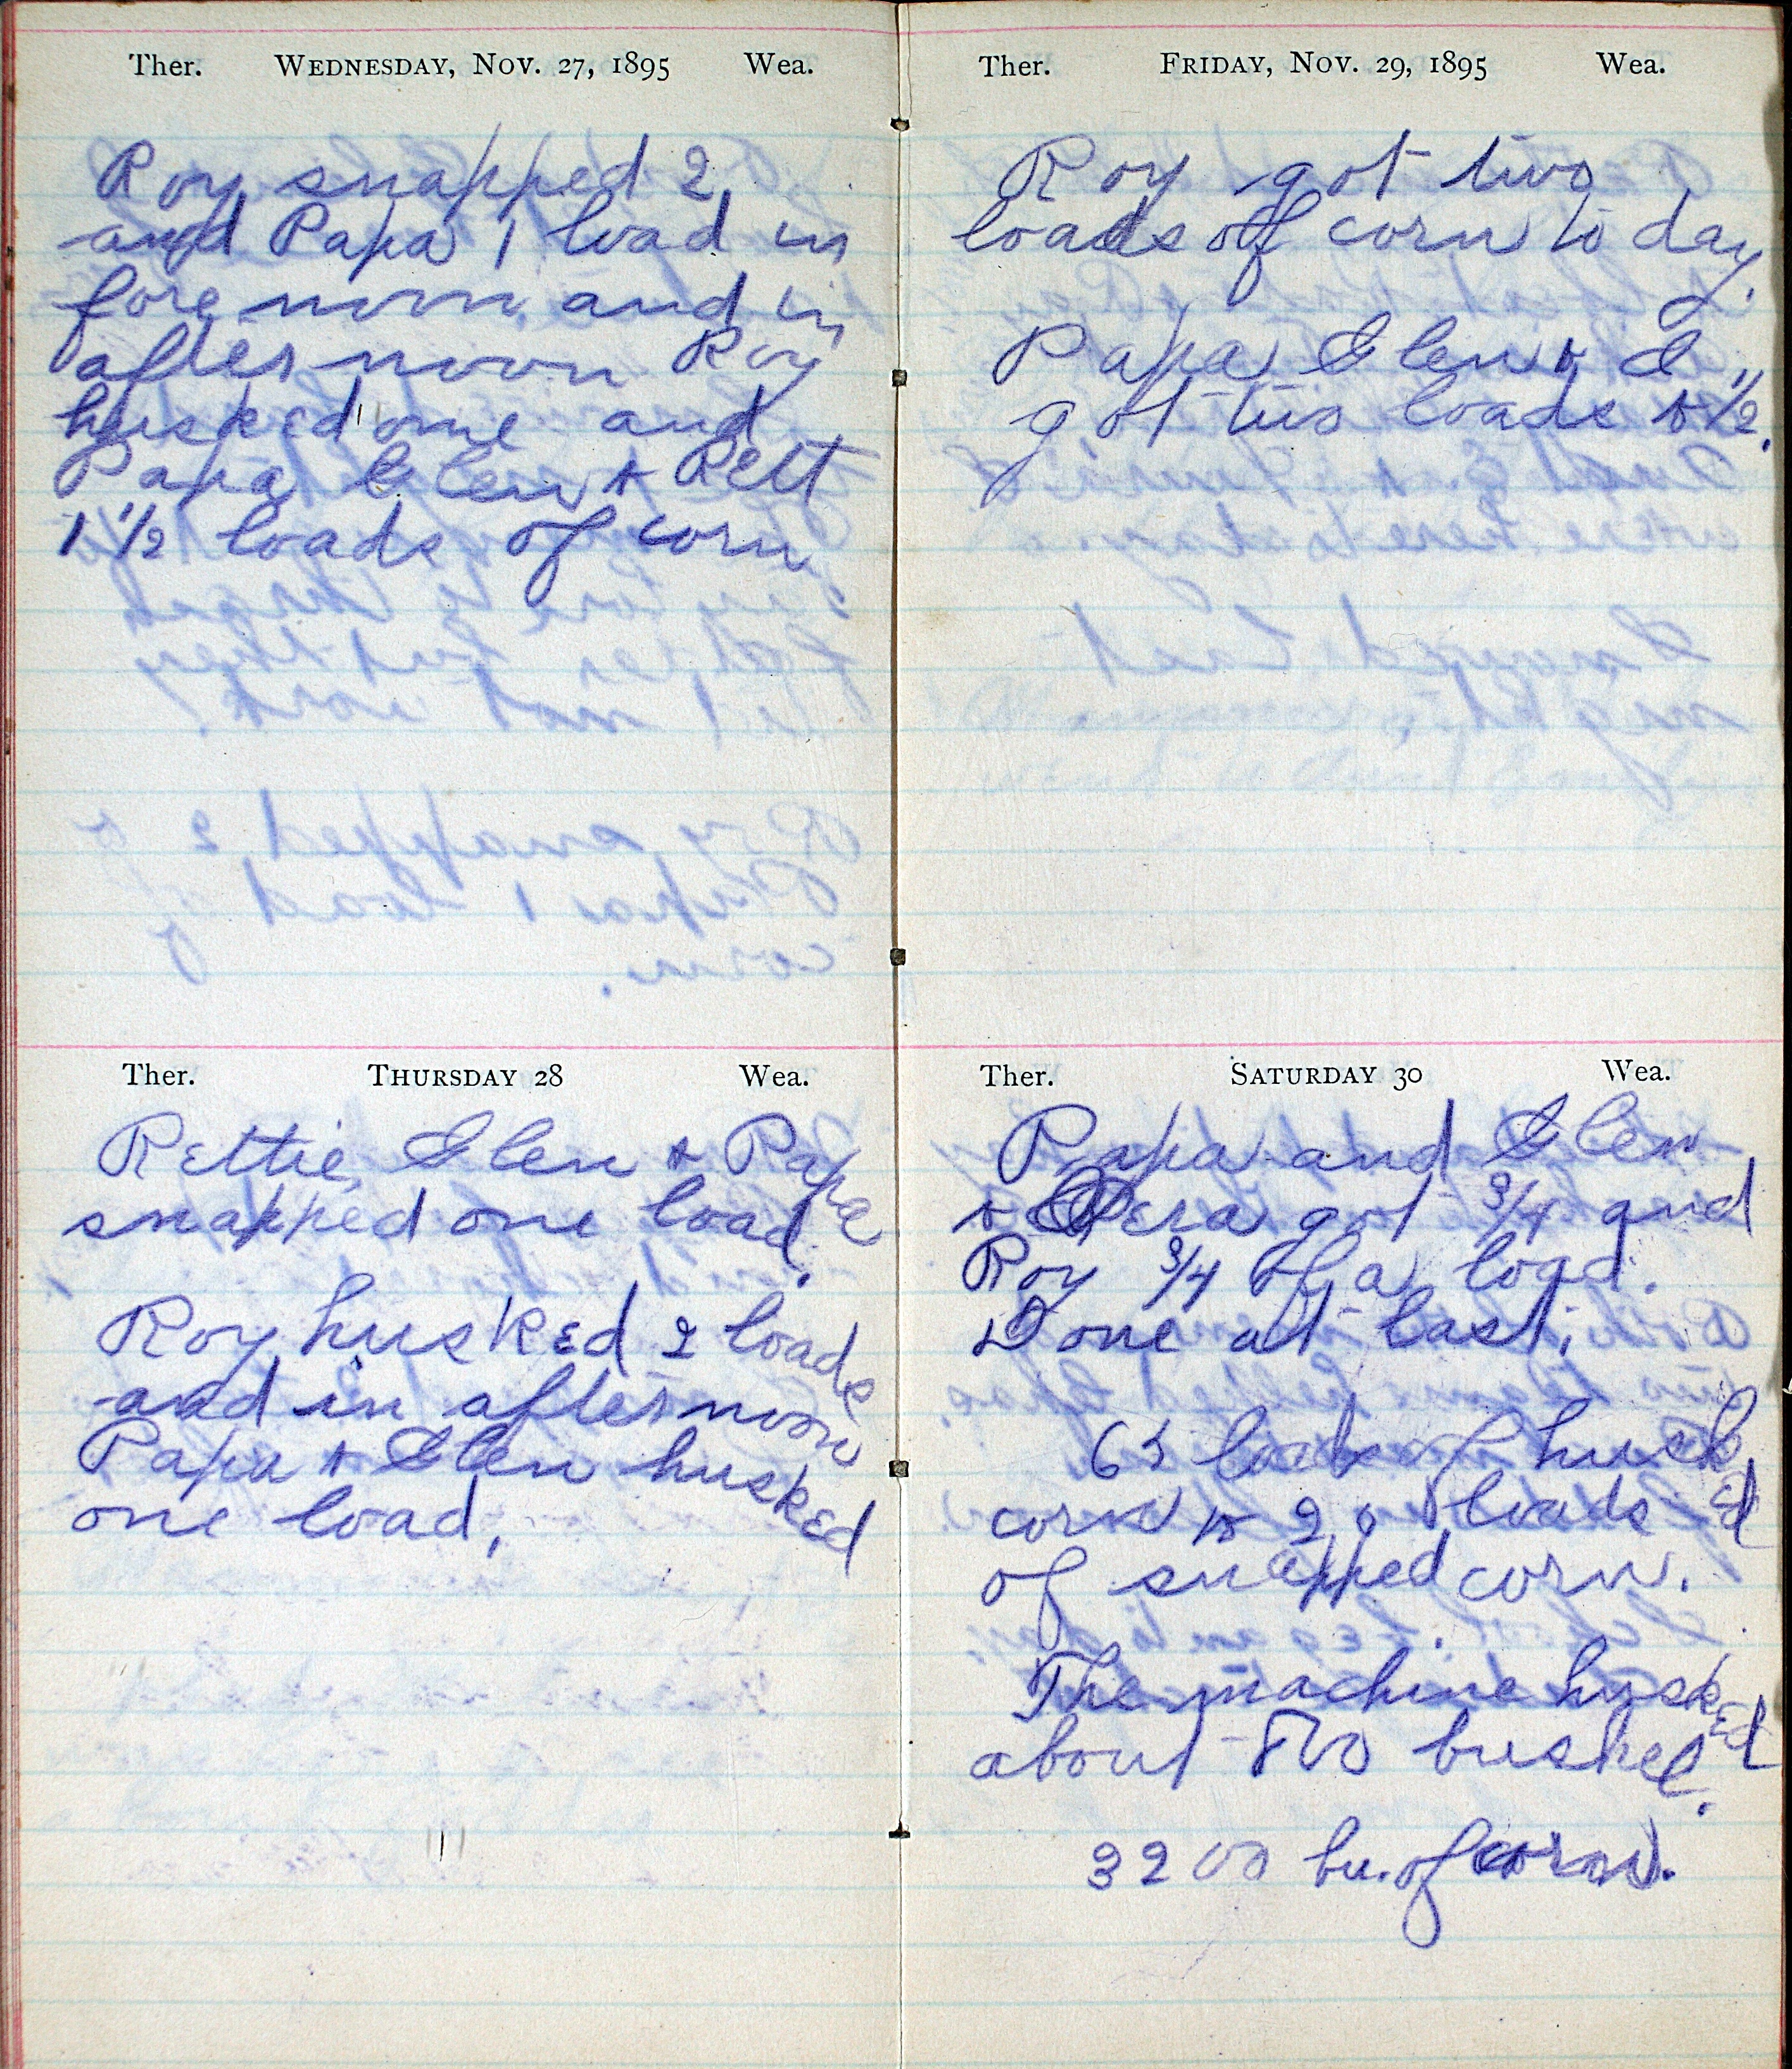 Ther. WEDNESDAY, NOV. 27, 1895 Wea.
Roy snapped 2
and Papa 1 load in
fore noon and in
after noon Roy
husked one and
Papa Glen & Rett
1 1/2 loads of corn
Ther. THURSDAY 28 Wea.
Rettie, Glen & Papa
snapped one load.
Roy husked 2 loads
and in afternoon
Papa & Glen husked
one load.
Ther. FRIDAY, NOV. 29, 1895 Wea.
Roy got two
loads of corn to day.
Papa Glen & I
got two loads & 1/2.
Ther. SATURDAY 30 Wea.
Papa and Glen
& Vera got 3/4 and
Roy 3/4 of a load.
Done at last.
loads of husked
corn & loads
of snapped corn.
The machine husked
about 800 bushel.
3200 bu. of corn.